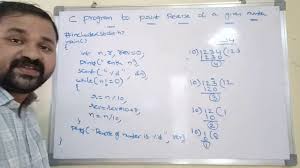 C program to print Reverse of a given number
#include<stdio.h>
main()
{
int n, r, rev=0;
printf("enter n");
scanf("%d", &n);
while(n!=0)
{
r=n%10;
rev=rev*10+r;
n=n/10;
}
printf("Reverse of number is %d", rev);
10) 1234 (123
1230
(4)
10) 123 (12
120
(3)
10) 12 (1
10
(2)
10) 1 (0
0